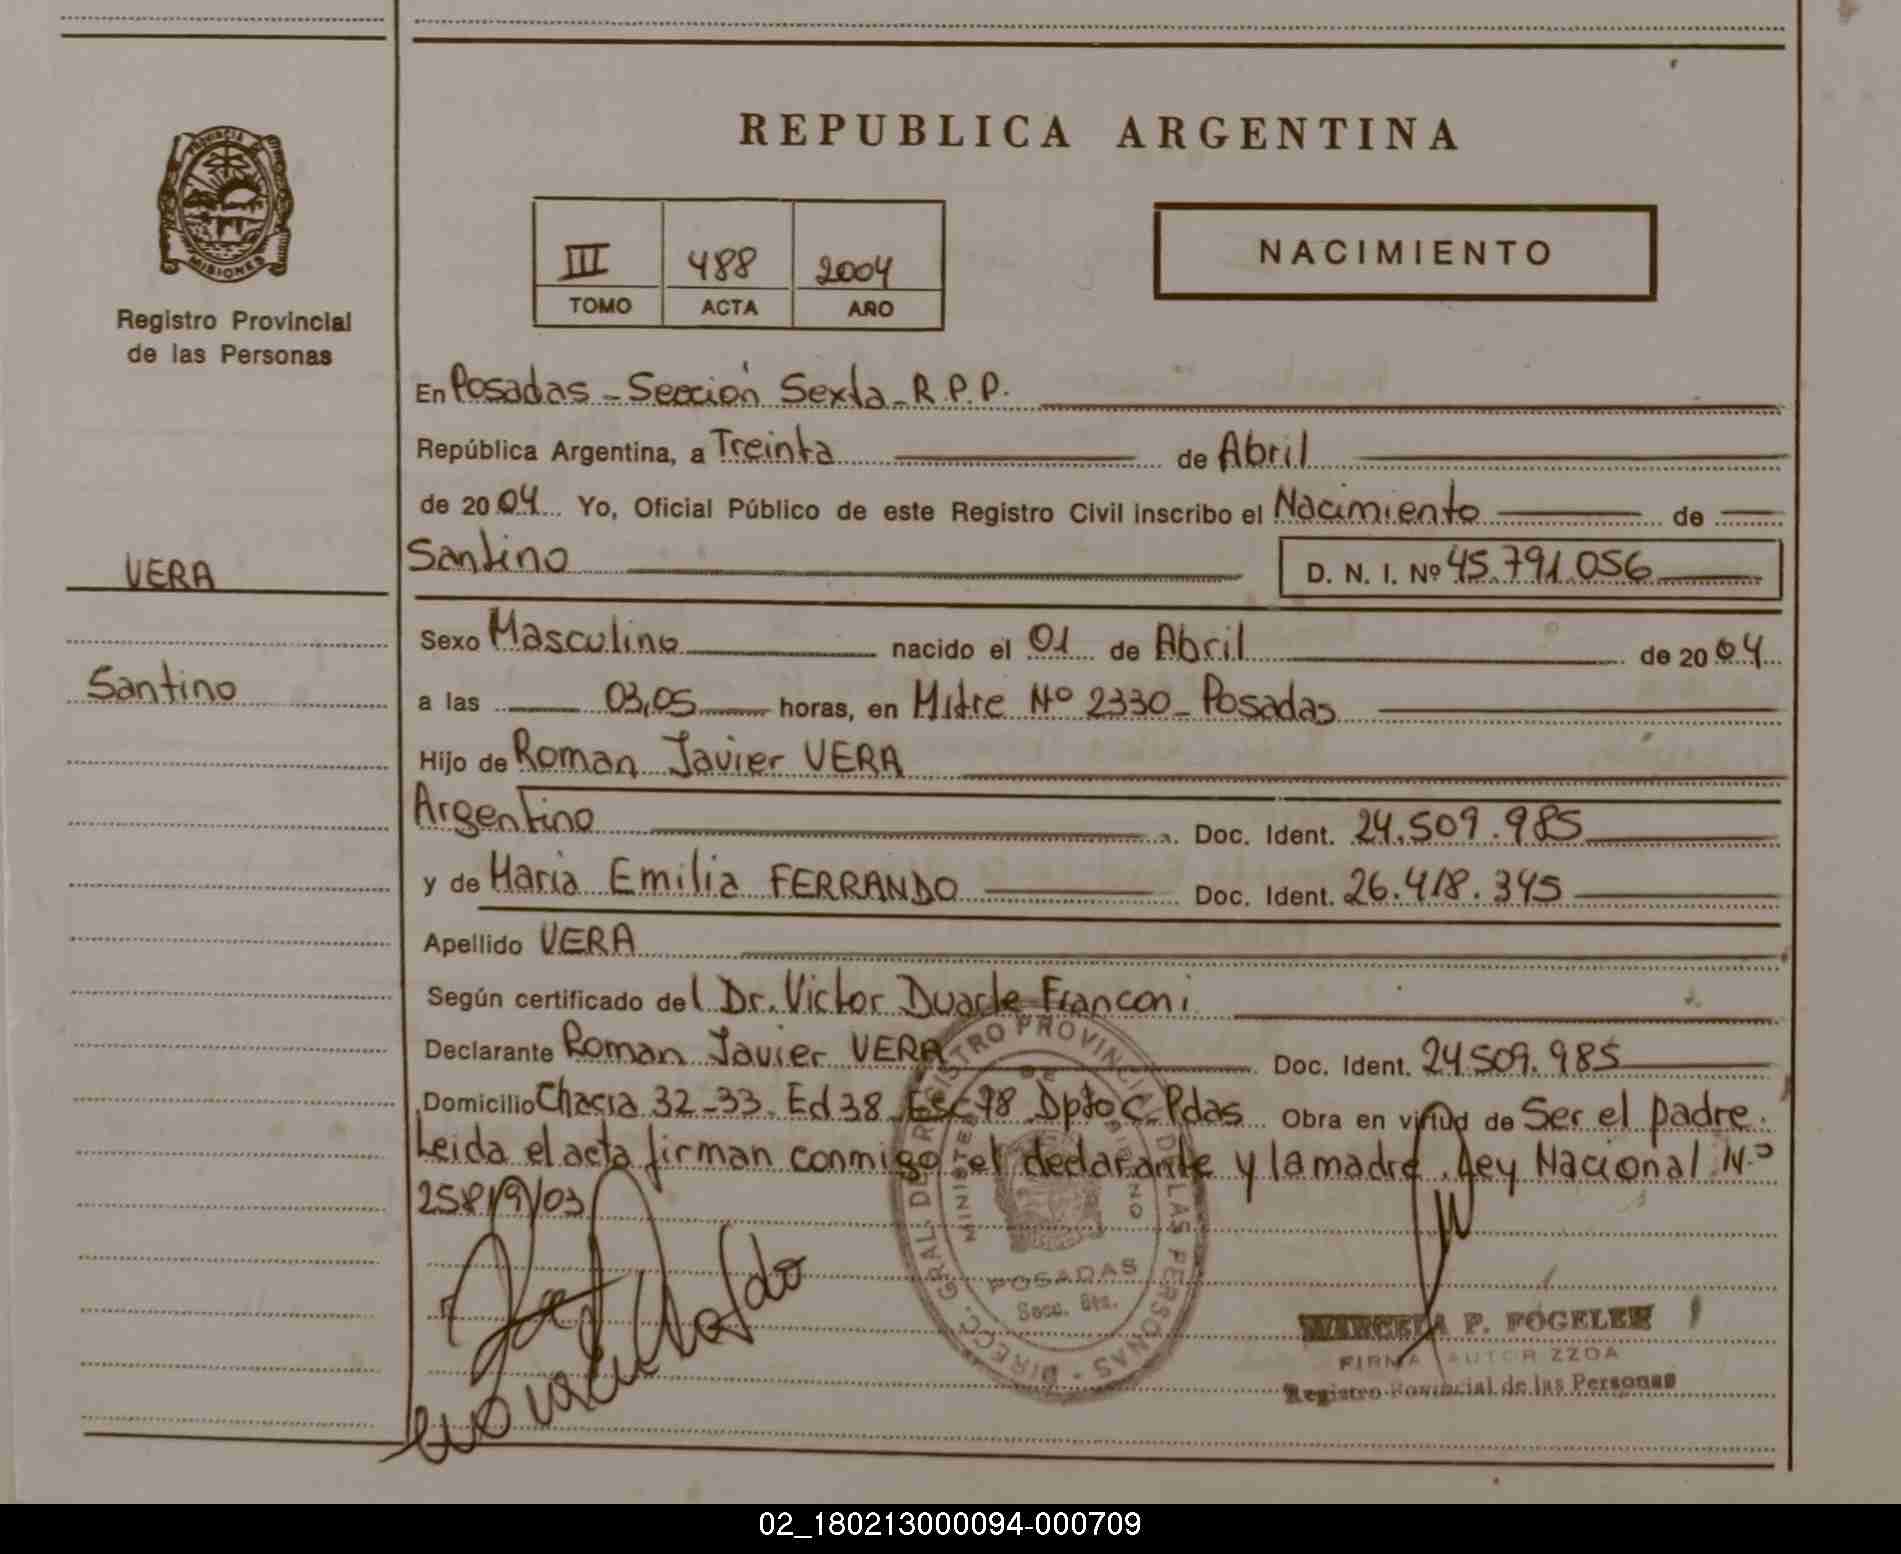 PROVINCIA DE
MISIONES
Registro Provincial
de las Personas
VERA
Santino
REPUBLICA ARGENTINA
III 488 2004
TOMO ACTA AÑO
NACIMIENTO
En Posadas - Sección Sexta - R.P.P.
República Argentina, a Treinta de Abril
de 2004 Yo, Oficial Público de este Registro Civil inscribo el Nacimiento de
Santino D. N. I. Nº 45.791.056
Sexo Masculino nacido el 01 de Abril de 2004
a las 03,05 horas, en Mitre Nº 2330 - Posadas
Hijo de Roman Javier VERA
Argentino Doc. Ident. 24.509.985
y de Maria Emilia FERRANDO Doc. Ident. 26.418.345
Apellido VERA
Según certificado del Dr. Victor Duarte Franconi
Declarante Roman Javier VERA Doc. Ident. 24.509.985
Domicilio Chacra 32-33. Ed 38 Esc 78 Dpto C. Pdas Obra en virtud de Ser el padre.
Leida el acta firman conmigo el declarante y la madre. Ley Nacional N.º
25819/03
DIRECC. GRAL. DE REGISTRO PROVINCIAL DE LAS PERSONAS
POSADAS
Secc. 6ta.
MARCELA P. FOGELER
FIRMA AUTORIZZDA
Registro Provincial de las Personas
02_180213000094-000709